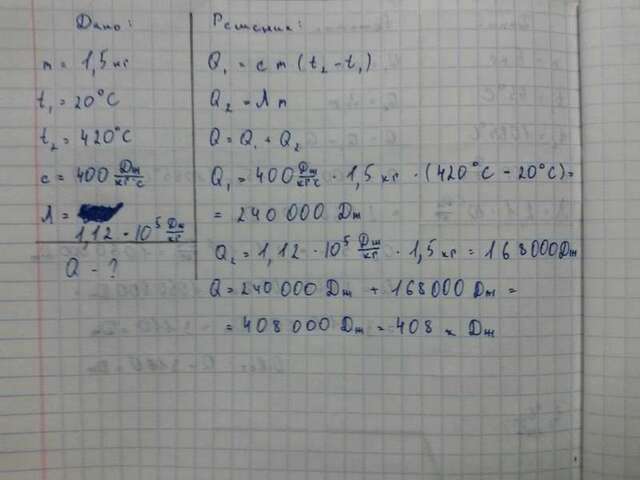 Дано:
m = 1,5 кг
t₁ = 20°C
t₂ = 420°C
c = 400 Дж/кг°C
λ = 1,12 · 10⁵ Дж/кг
Q - ?
Решение:
Q₁ = c m (t₂ - t₁)
Q₂ = λ m
Q = Q₁ + Q₂
Q₁ = 400 Дж/кг°C · 1,5 кг · (420°C - 20°C) =
= 240 000 Дж
Q₂ = 1,12 · 10⁵ Дж/кг · 1,5 кг = 168000 Дж
Q = 240 000 Дж + 168000 Дж =
= 408 000 Дж = 408 к Дж